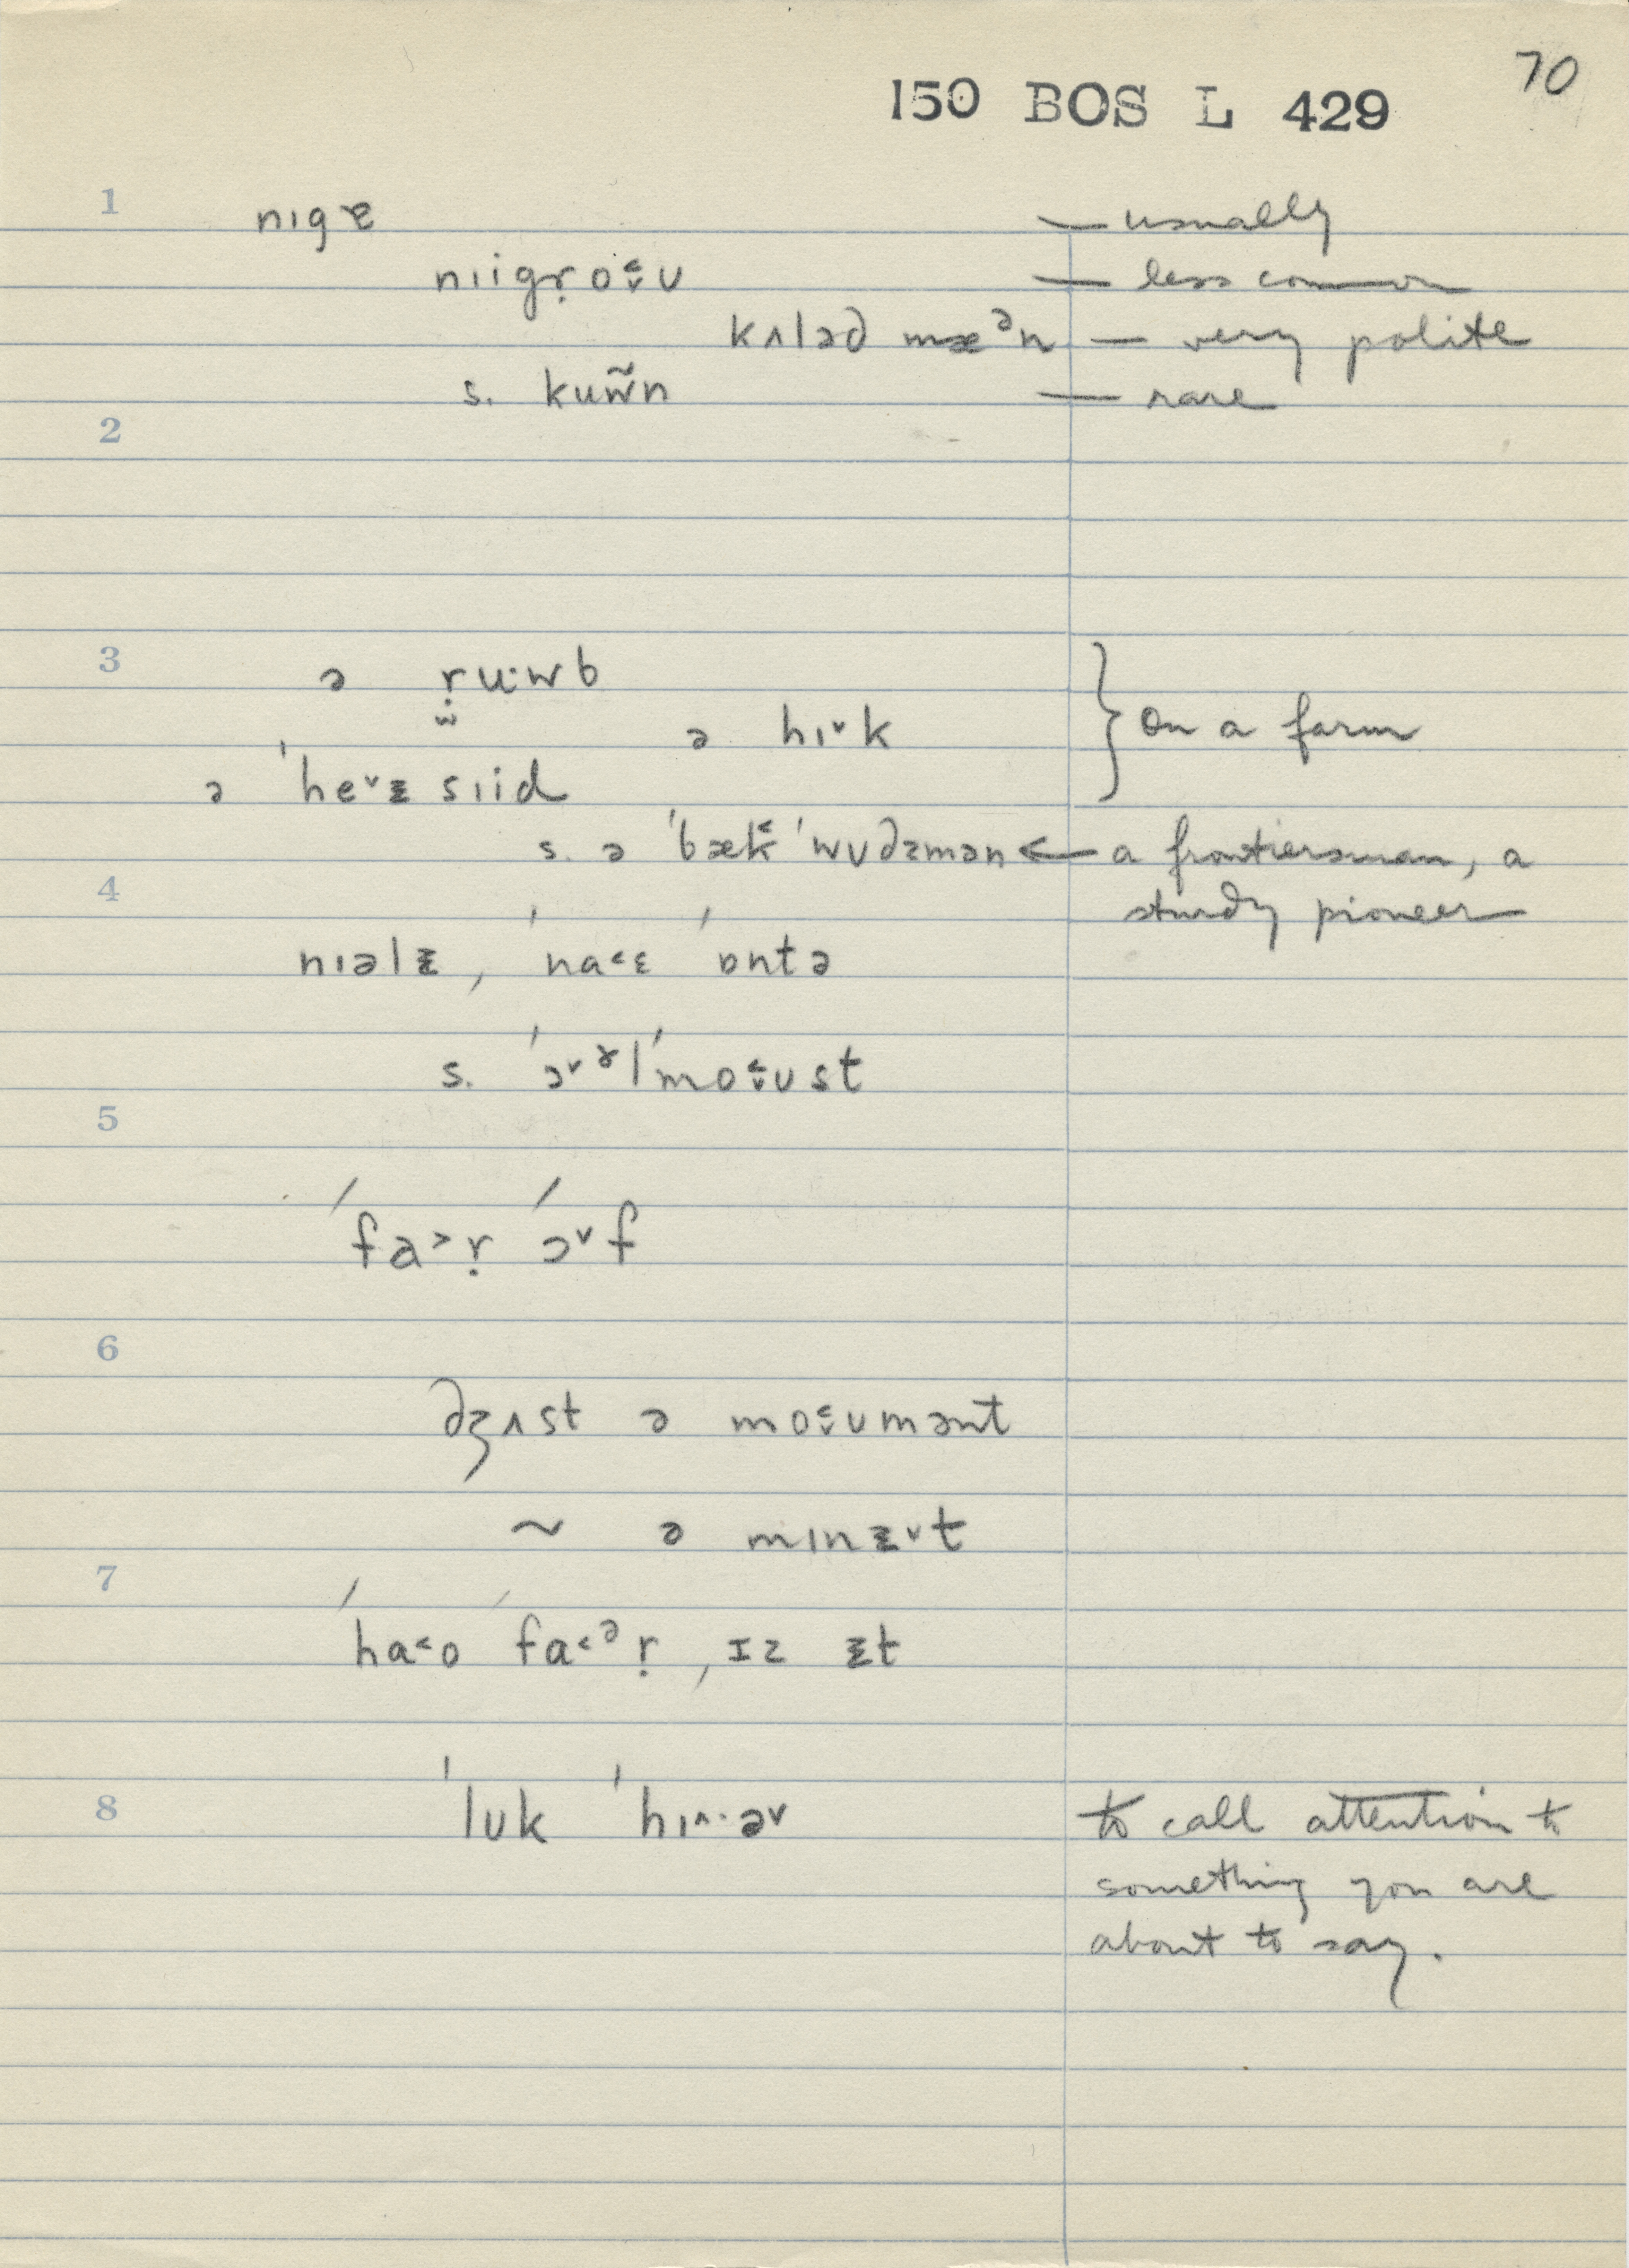 70
150 BOS L 429
1 nɪgɚ — usually
nɪigṛo꞉ʊ — less common
kʌləd mæᵊn — very polite
s. kuw̃n — rare
2
3 ə ṛu·wb
ə hɪ˅k } on a farm
ə ˈhe˅ᵻ sɪid
s. ə ˈbæk˂ ˈwʊdzmən ← a frontiersman, a
4 sturdy pioneer
nɪəlᵻ, ˈna˂ɛ ˈɒntə
s. ˈɔ˅ɤlˈmo˂ʊst
5
ˈfa˃ṛ ˈɔ˅f
6
dʒʌst ə mo˂ʊmənt
~ ə mɪnᵻ˅t
7
ˈha˂o ˈfa˂ᵊṛ, ɪz ᵻt
8 ˈlʊk ˈhɪ˄·ə˅ to call attention to
something you are
about to say.